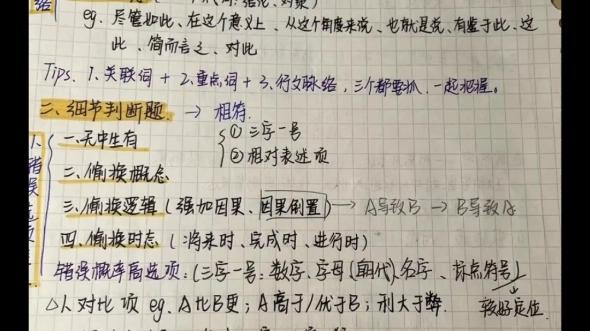 结
eg. 尽管如此、在这个意义上、从这个角度来说、也就是说、有鉴于此、这
此、简而言之、对此
Tips. 1.关联词 + 2.重点词 + 3.行文脉络，三个都要抓，一起把握。
二、细节判断题 → 相符.
一.无中生有
① 三字一号
② 相对表述项
二.偷换概念
三.偷换逻辑（强加因果、因果倒置）→ A导致B → B导致A
四.偷换时态（将来时、完成时、进行时）
错误概率高选项：（三字一号：数字、字母（朝代）、名字、标点符号）
↓较好定位.
△1. 对比项 eg. A比B更；A高于/优于B；利大于弊.
1.错误选项